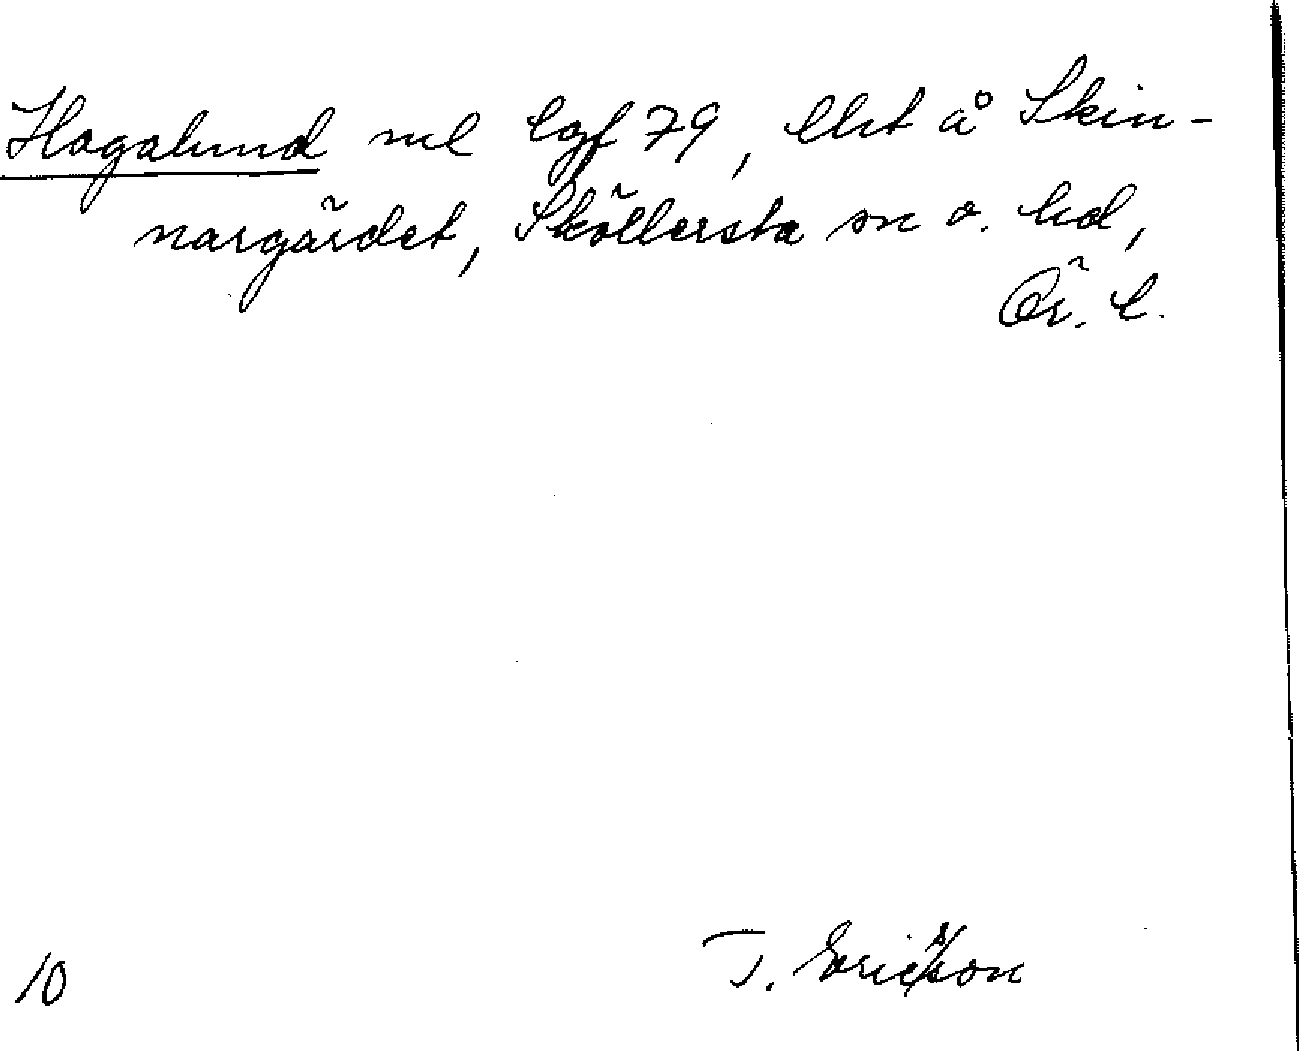 Hagalund nel lgf 79, lht å Skin-
nargärdet, Sköllersta sn o. hd,
Ör. l.
10
T. Ericsson